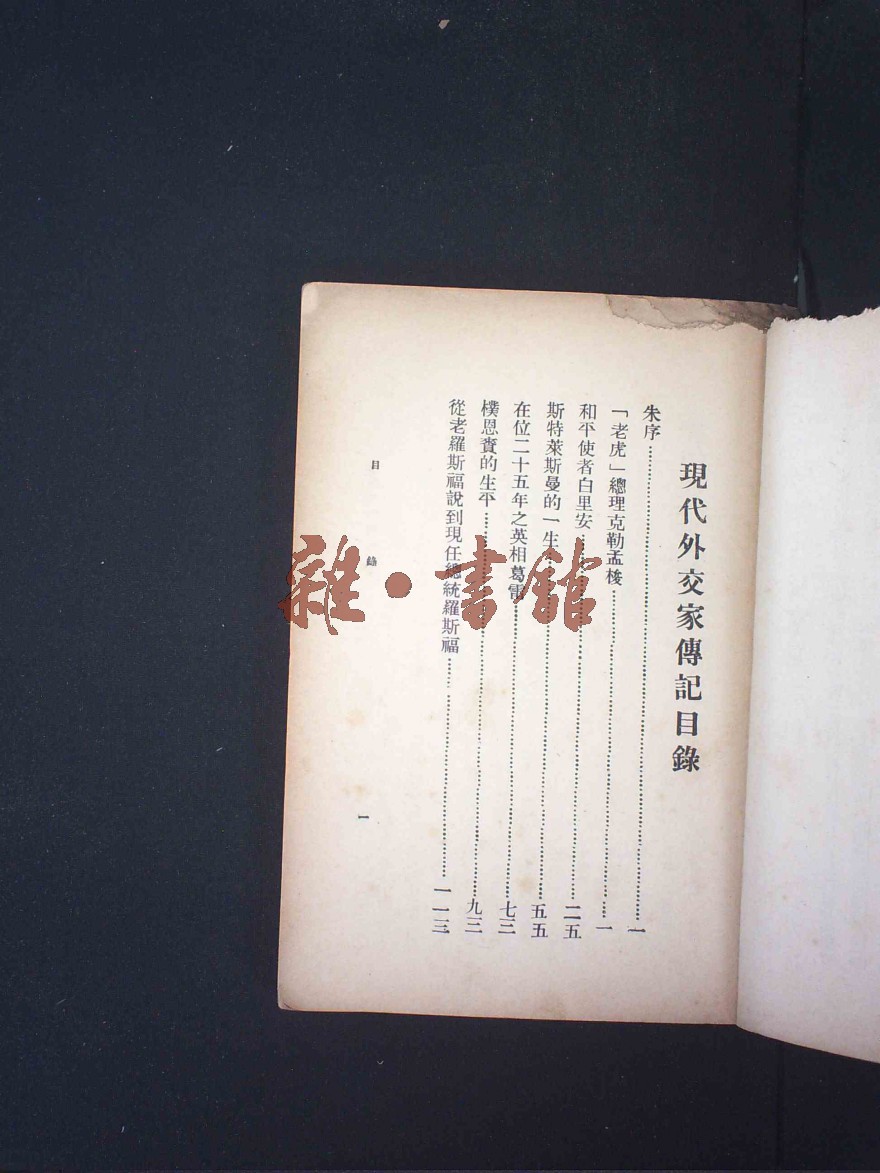 現代外交家傳記目錄
朱序……一
「老虎」總理克勒孟梭……一
和平使者白里安……二五
斯特萊斯曼的一生……五五
在位二十五年之英相葛雷……七三
樸恩賚的生平……九三
從老羅斯福說到現任總統羅斯福……一一三
目錄
一
雜·書館